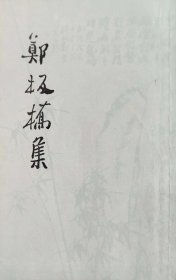 鄭板橋集